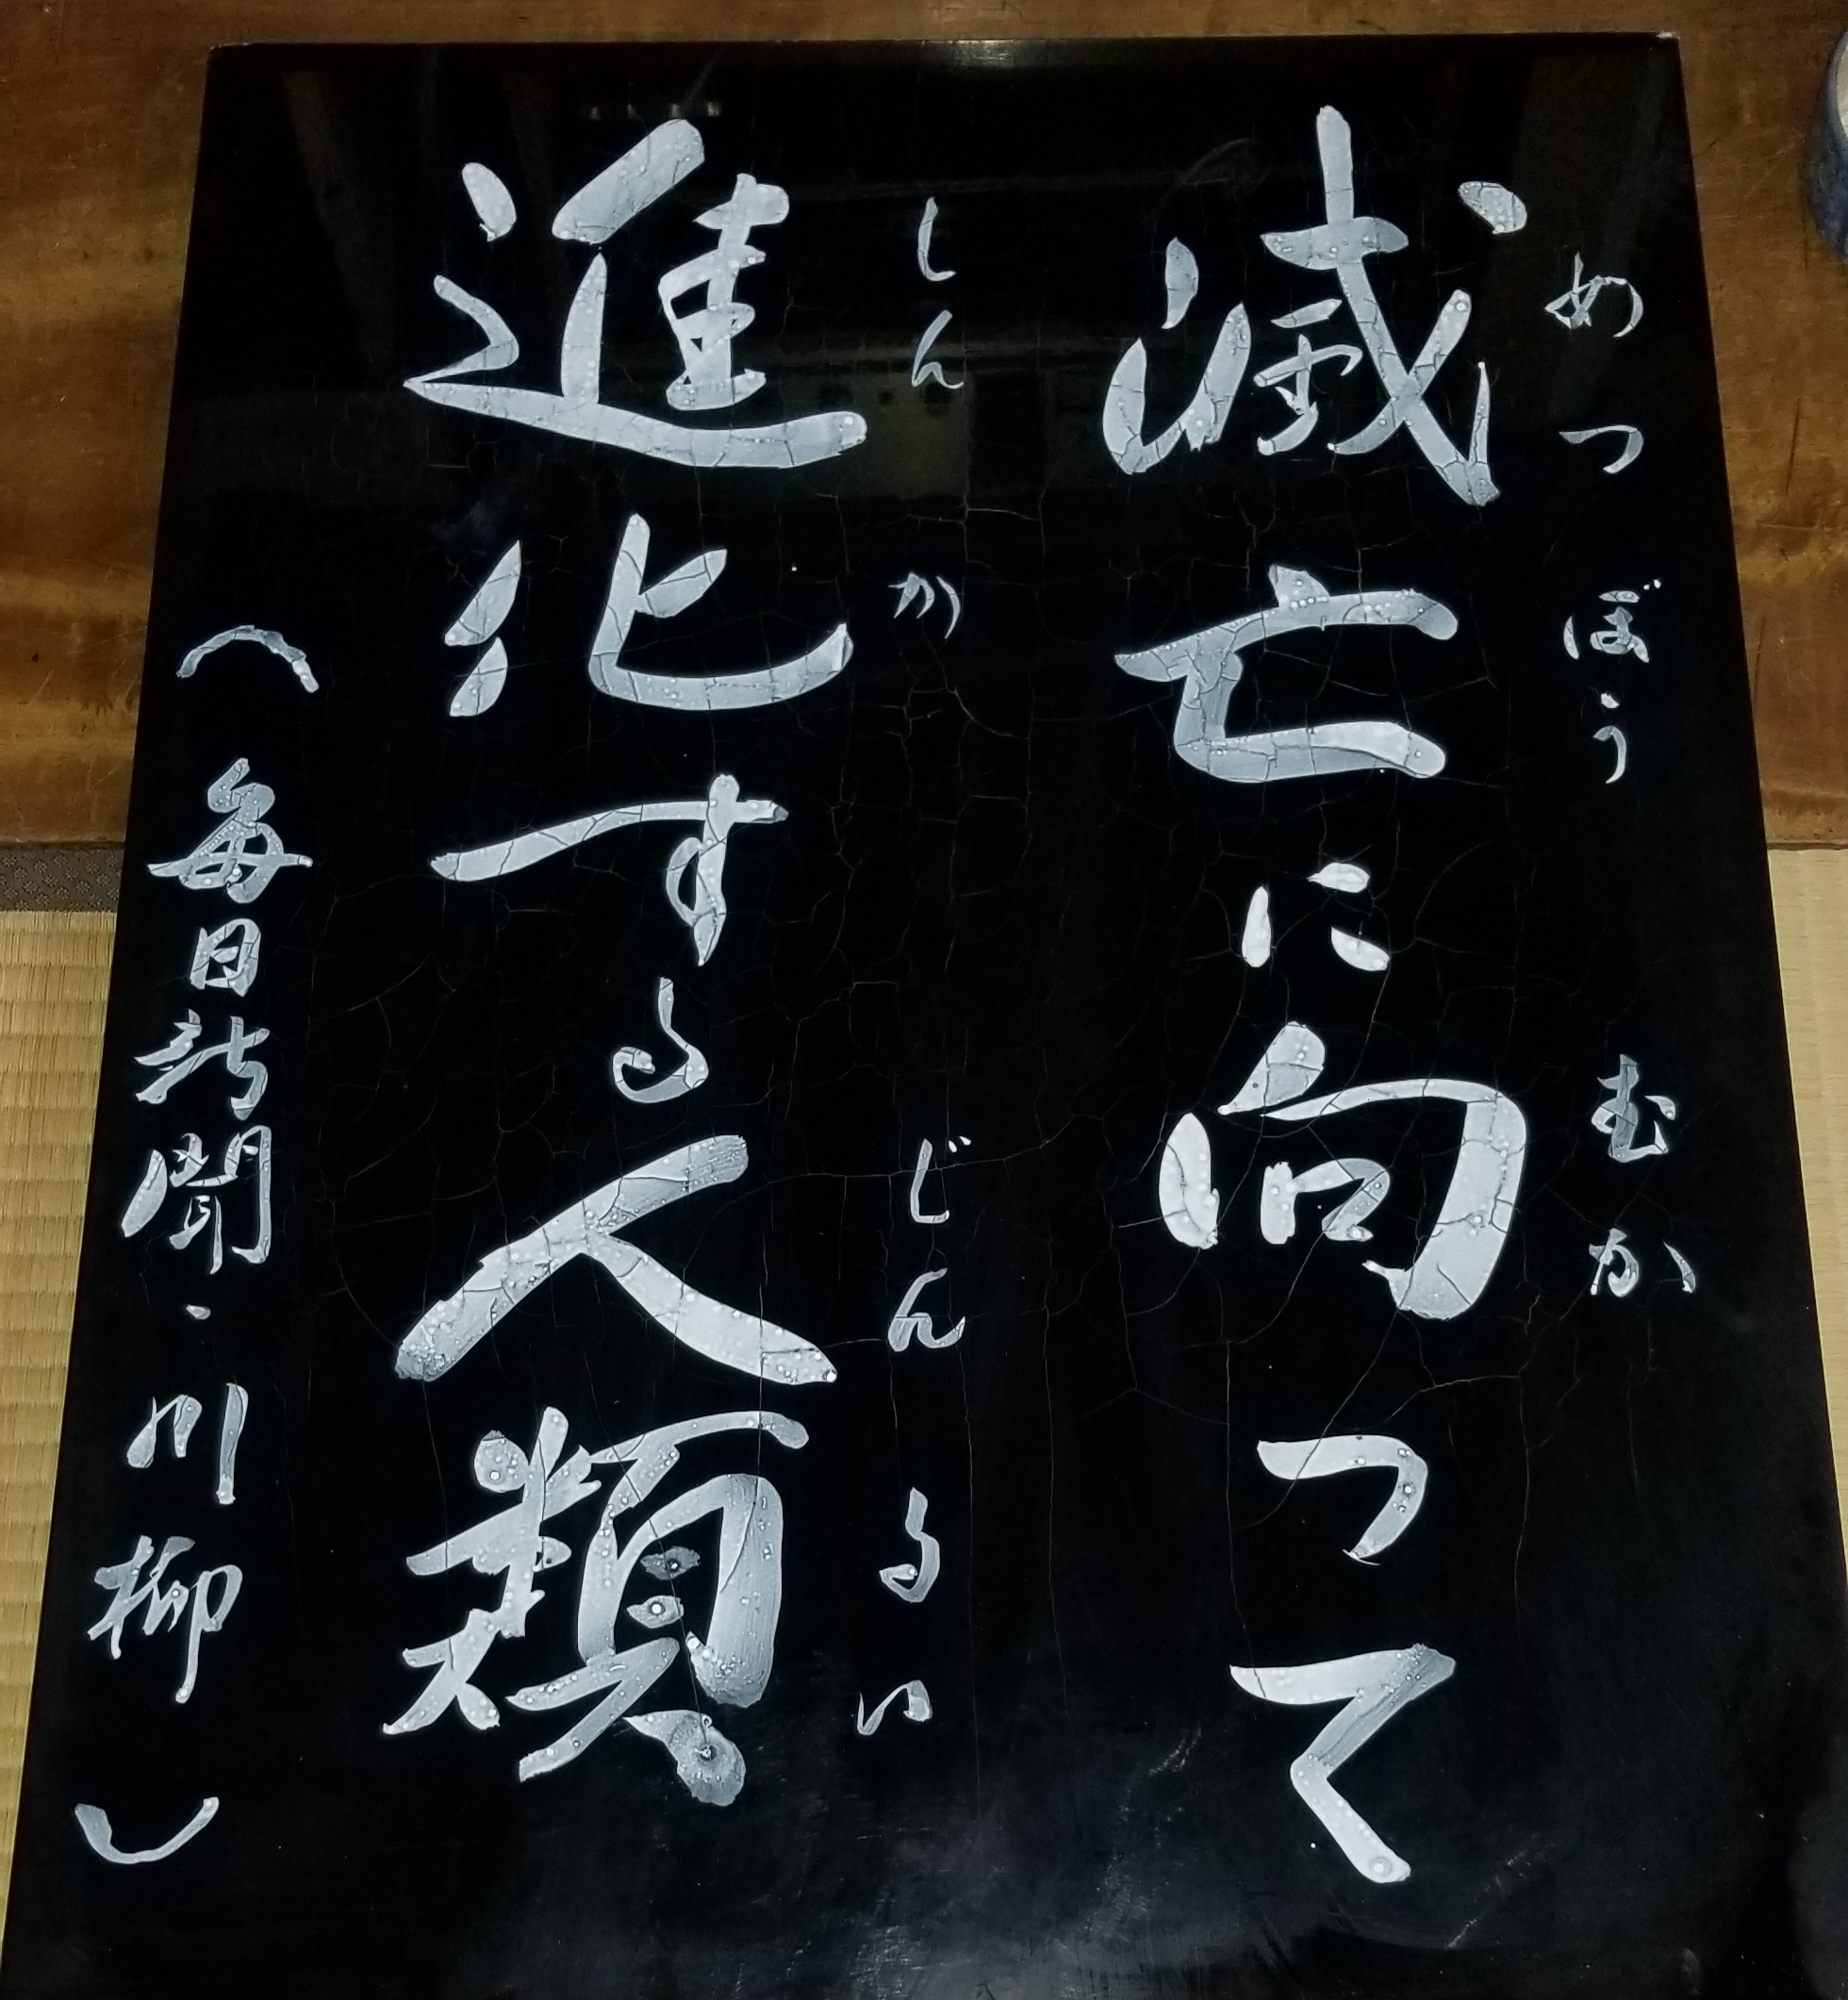 めつぼう むか
滅亡に向って
しんか じんるい
進化する人類
(毎日新聞・川柳)